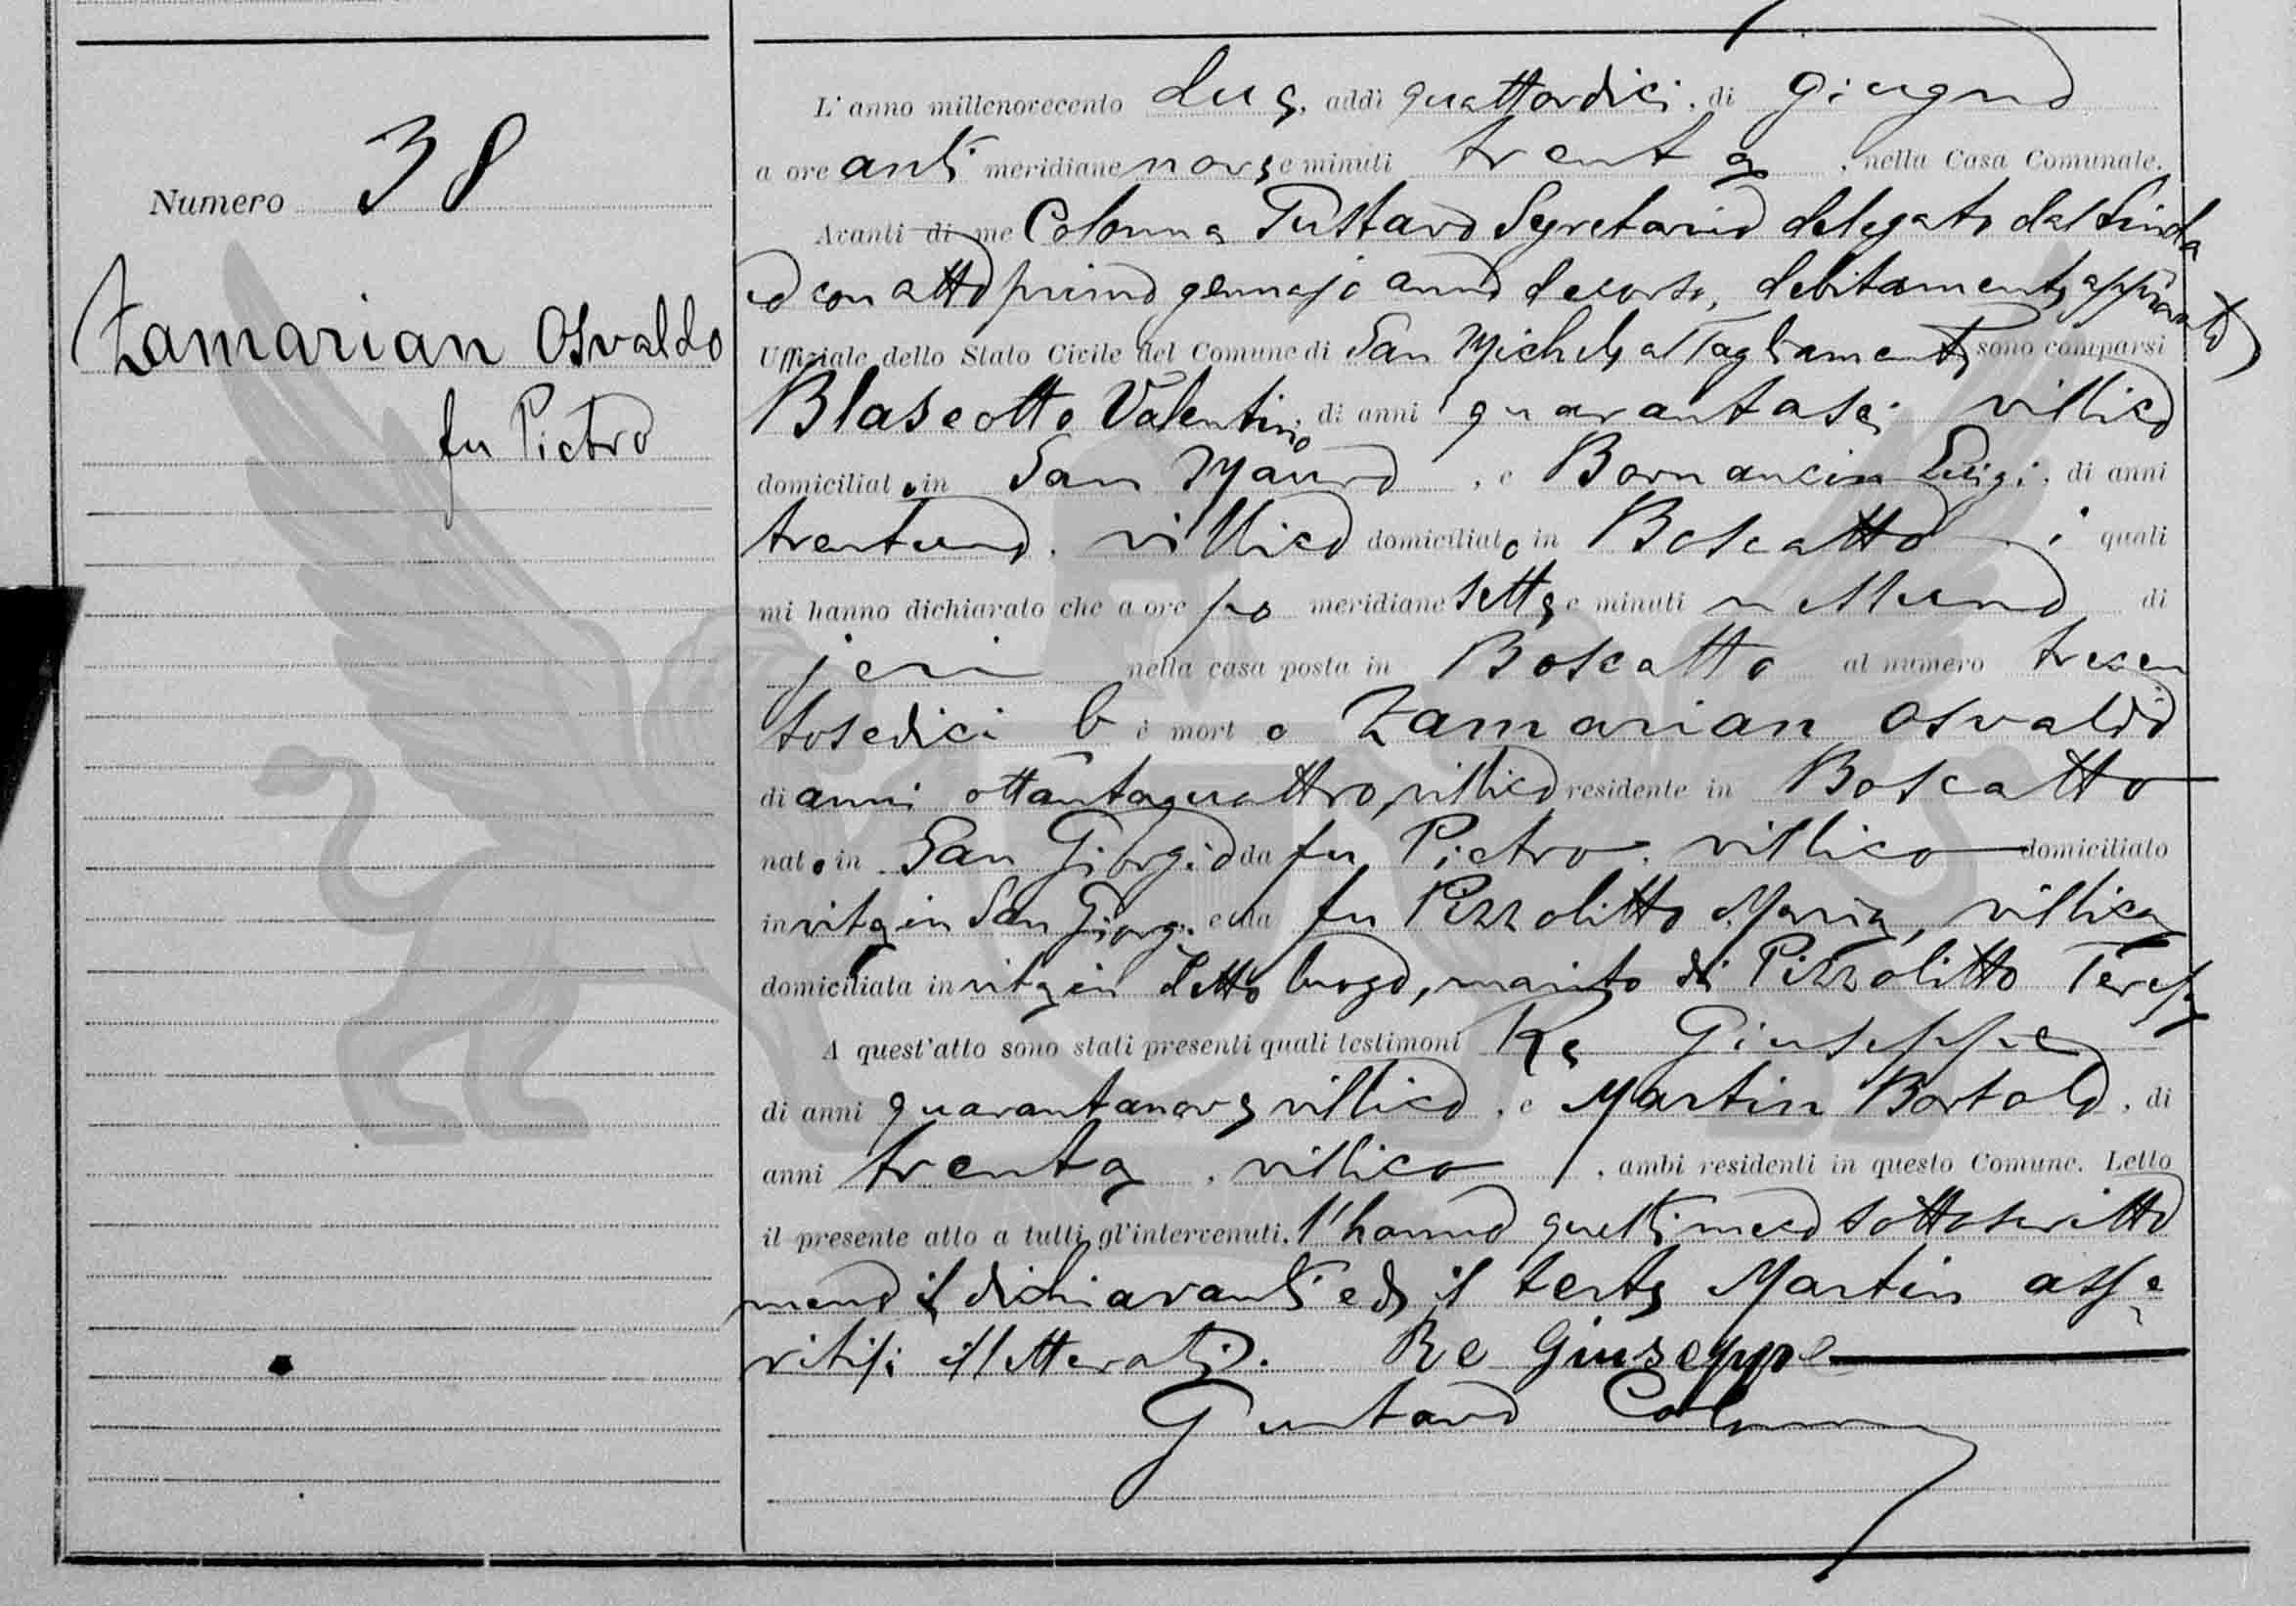 Numero 38
Zamarian Osvaldo
fu Pietro
L'anno millenovecento due, addì quattordici, di Giugno
a ore anti meridiane nove e minuti trenta, nella Casa Comunale.
Avanti di me Colonna Gustavo Segretario delegato dal Sinda
co con atto primo gennajo anno decorso, debitamente approvato
Uffiziale dello Stato Civile del Comune di San Michele al Tagliamento sono comparsi
Blaseotto Valentino, di anni quarantasei villico
domiciliato in San Mauro, e Bornancin Luigi, di anni
trentuno, villico domiciliato in Boscatto i quali
mi hanno dichiarato che a ore po meridiane sette e minuti nessuno di
jeri nella casa posta in Boscatto al numero trecen
tosedici b è morto Zamarian Osvaldo
di anni ottantaquattro, villico residente in Boscatto
nato in San Giorgio da fu Pietro, villico domiciliato
in vita in San Giorg. e da fu Pizzolitto Maria, villica
domiciliata in vita in detto luogo, marito di Pizzolitto Teresa
A quest'atto sono stati presenti quali testimoni Re Giuseppe
di anni quarantanove villico, e Martin Bortolo, di
anni trenta, villico, ambi residenti in questo Comune. Letto
il presente atto a tutti gl'intervenuti, l'hanno questi meco sottoscritto
meno i dichiaranti ed il teste Martin asse
ritisi illetterati. Re Giuseppe
Gustavo Colonna